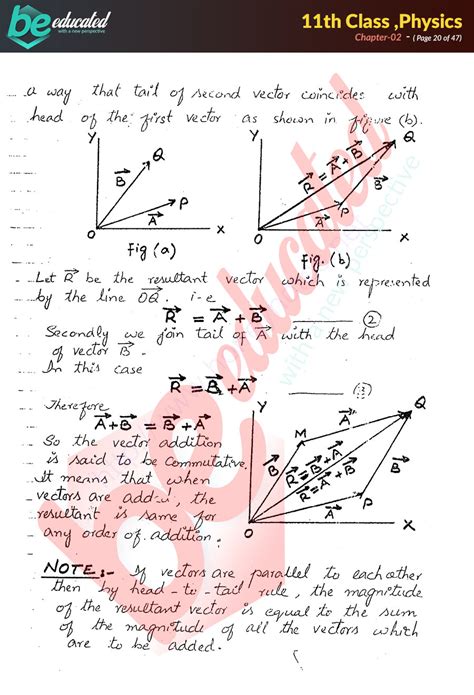 be educated
with a new perspective
11th Class ,Physics
Chapter-02 - ( Page 20 of 47)
a way that tail of second vector coincides with
head of the first vector as shown in figure (b).
Y
Q
B→
P
A→
O
X
fig (a)
Y
Q
R→ = A→ + B→
B→
P
A→
O
X
fig. (b)
Let R→ be the resultant vector which is represented
by the line OQ→. i-e
R→ = A→ + B→ ——— (2)
Secondly we join tail of A→ with the head
of vector B→.
In this case
R→ = B→ + A→ ——— (3)
Therefore
A→ + B→ = B→ + A→
So the vector addition
is said to be commutative.
It means that when
vectors are added, the
resultant is same for
any order of addition.
Y
A→
Q
M
B→
R→ = B→ + A→
R→ = A→ + B→
B→
P
A→
O
X
NOTE:- If vectors are parallel to each other
then by head-to-tail rule, the magnitude
of the resultant vector is equal to the sum
of the magnitude of all the vectors which
are to be added.
be educated
with a new perspective